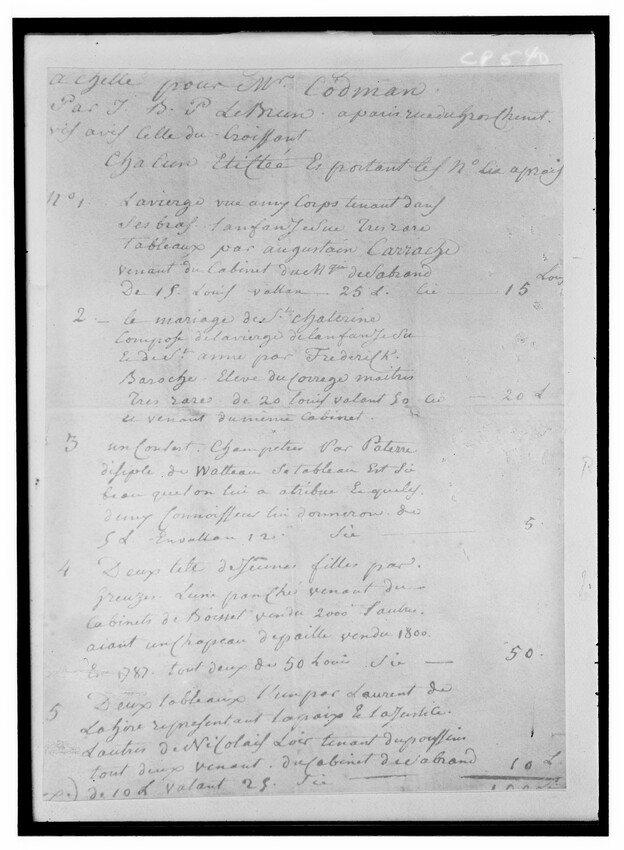 CP 540
achette pour Mr. Codman.
Par J. B. P. LeBrun. a paris rue du Gros Chenet.
vis avis celle du Croissant
Chacun Etictée Es portant les No. cia après
No. 1 La vierge vue amy Corps tenant dans
Ses bras lanfan Jesue tres rare
tableaux par augustain Carrache
venant du Cabinet du Mquis de Sabrand
De 15 Louis vallan 25 L. Cie — 15 Louis
2 — le mariage de Ste. Chaterine
Compose de la vierge de lanfan Jesu
Es de St. anne par Frederick.
Baroche. Eleve du Correge maitres
Tres rare de 20 louis valant 50 Cie — 20 L
Ce venant du même Cabinet.
3 un Consert. Champetres Par Paterre
disiple de Watteau Se tableau Est Sie
beau que lon lui a atribue Es quels.
demy Connoisseur lui donneron. de
5 L. En vallan 12. Sie — 5.
4 Deux tete de Jeunes filles par.
Greuzes Lune panChés venant du
Cabinets de Boisset vendu 2000 Lautre.
aiant un Chapeau de paille vendu 1800.
En 1787. tout deux de 50 Louis Sie — 50.
5 Deux tableaux l'un par Laurent de
Lahire representant la paix Es la Justice.
Lautres de Nicolais Loir tenant du poussin
tout deux venant. du Cabinet de Sabrand
de 10 L valant 25. Sie — 10 L.